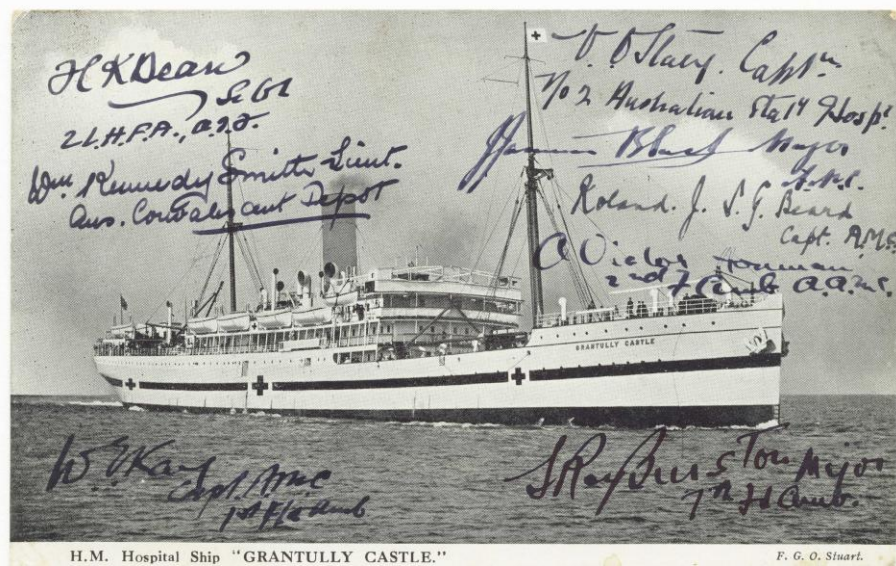 H K Dean
Lt Col
2 L.H.F.A., A.I.F.
Wm. Kennedy Smith Lieut.
Aus. Convalescent Depot
Capt.
No 2 Australian Staty Hospl
Black Major
Roland. J. S. G. Beard
Capt. A.M.C.
A Victor
2nd F Amb A.A.M.C.
GRANTULLY CASTLE
W. E Kay
Capt. AMC
1st Fld Amb
S Roy Burston Major
7th Fd Amb.
H.M. Hospital Ship "GRANTULLY CASTLE."
F. G. O. Stuart.